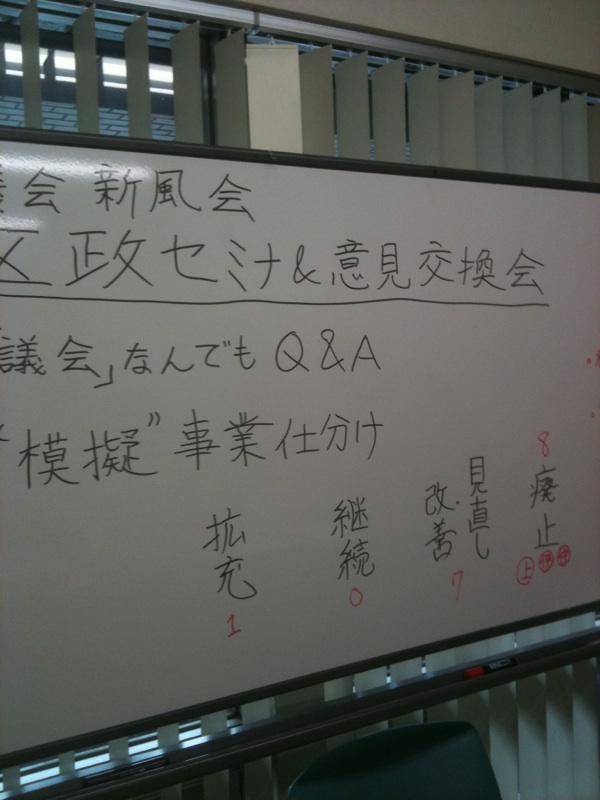 会 新風会
区政セミナ&意見交換会
議会」なんでも Q&A
“模擬” 事業仕分け
拡充
1
継続
0
見直し
改善
7
8
廃止
上